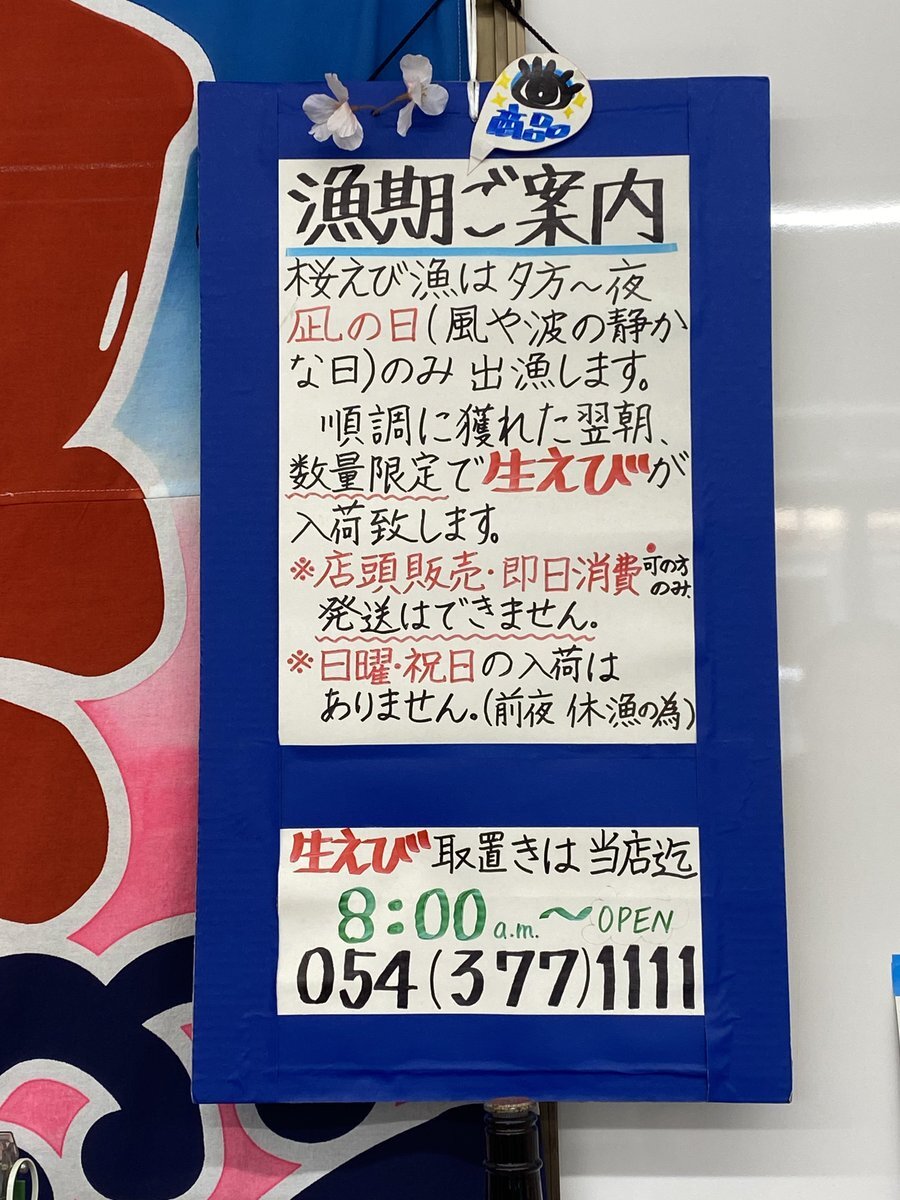 商品
漁期ご案内
桜えび漁は夕方～夜
凪しの日(風や波の静か
な日)のみ 出漁します。
順調に獲れた翌朝、
数量限定で生えびが
入荷致します。
※店頭販売・即日消費可の方のみ、
発送はできません。
※日曜・祝日の入荷は
ありません。(前夜 休漁の為)
生えび取置きは当店迄
8:00a.m.～OPEN
054(377)1111